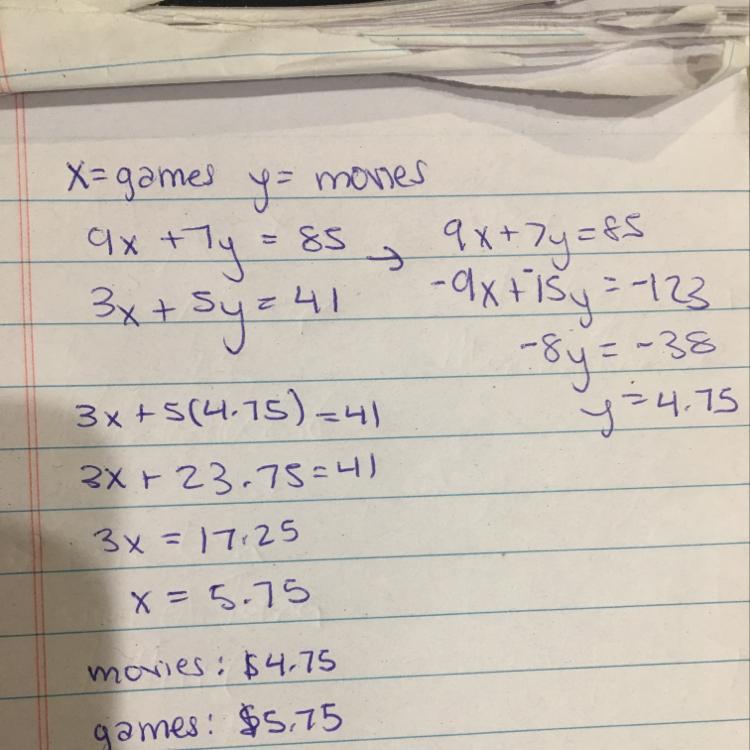 x=games y= movies
9x +7y = 85 → 9x+7y=85
3x + 5y = 41 -9x+-15y = -123
-8y = -38
y = 4.75
3x + 5(4.75) = 41
3x + 23.75=41
3x = 17.25
x = 5.75
movies: $4.75
games: $5.75